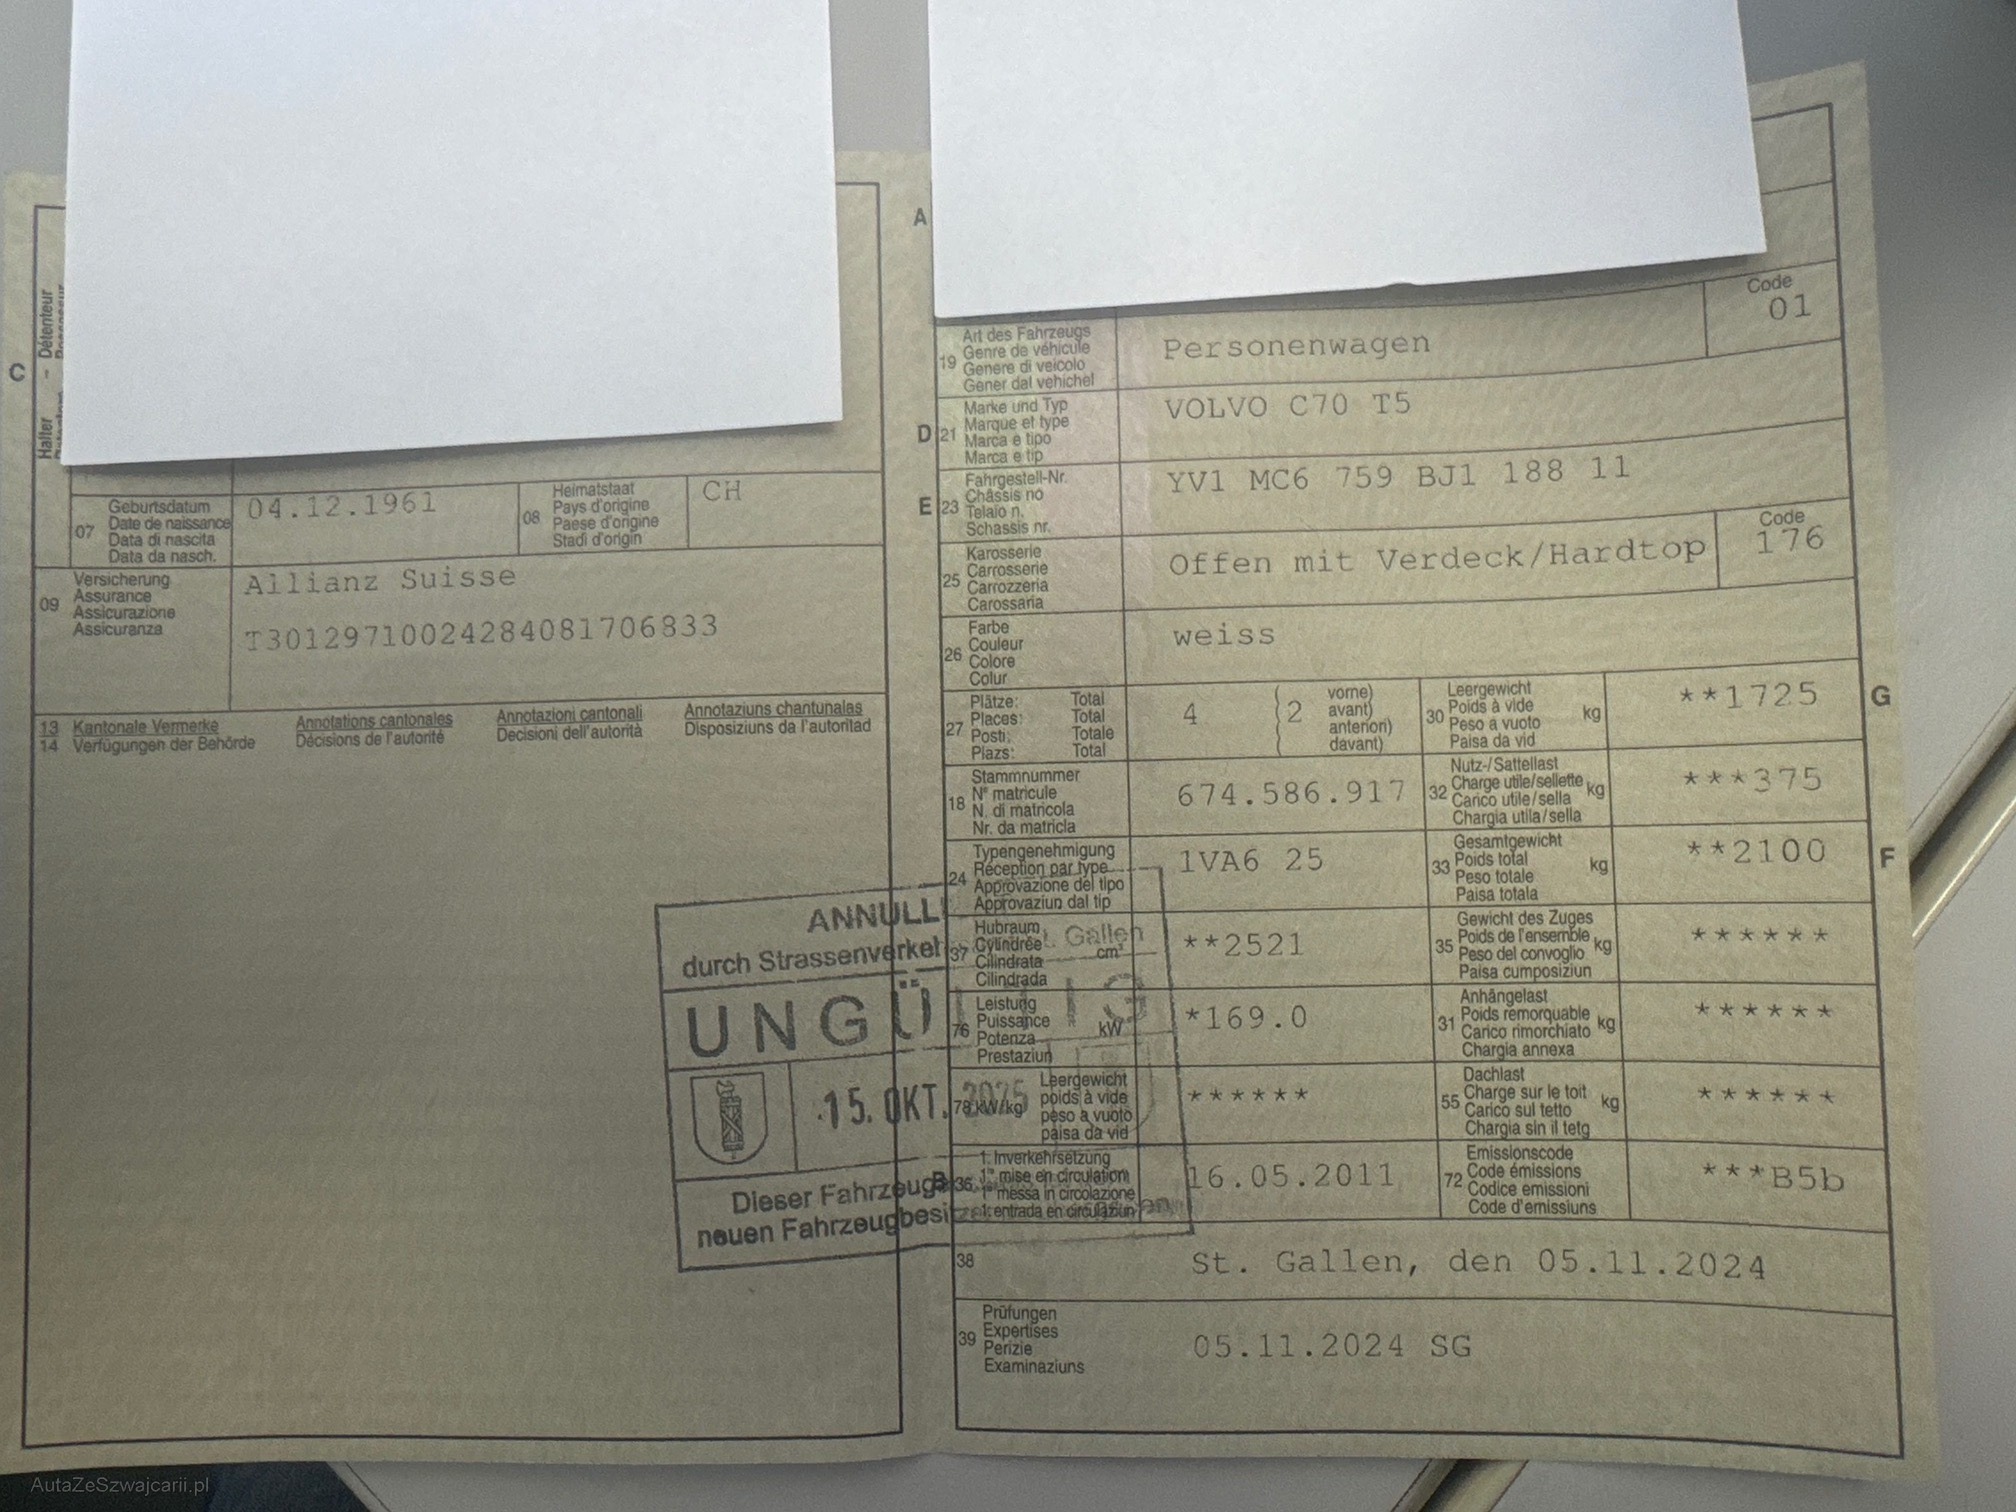 C
Halter - Détenteur
07
Geburtsdatum
Date de naissance
Data di nascita
Data da nasch.
04.12.1961
08
Heimatstaat
Pays d'origine
Paese d'origine
Stadi d'origin
CH
09
Versicherung
Assurance
Assicurazione
Assicuranza
Allianz Suisse
T30129710024284081706833
13 Kantonale Vermerke Annotations cantonales Annotazioni cantonali Annotaziuns chantunalas
14 Verfügungen der Behörde Décisions de l'autorité Decisioni dell'autorità Disposiziuns da l'autoritad
ANNULL
durch Strassenverkeh Gallen
UNGÜ IG
15. OKT. 2025
Dieser Fahrzeug
neuen Fahrzeugbesitze
A
Code
01
19
Art des Fahrzeugs
Genre de véhicule
Genere di veicolo
Gener dal vehichel
Personenwagen
D 21
Marke und Typ
Marque et type
Marca e tipo
Marca e tip
VOLVO C70 T5
E 23
Fahrgestell-Nr.
Châssis no
Telaio n.
Schassis nr.
YV1 MC6 759 BJ1 188 11
25
Karosserie
Carrosserie
Carrozzeria
Carossaria
Offen mit Verdeck/Hardtop
Code
176
26
Farbe
Couleur
Colore
Colur
weiss
27
Plätze: Total
Places: Total
Posti: Totale
Plazs: Total
4
2
vorne)
avant)
anteriori)
davant)
30
Leergewicht
Poids à vide
Peso a vuoto
Paisa da vid
kg
**1725
G
18
Stammnummer
N° matricule
N. di matricola
Nr. da matricla
674.586.917
32
Nutz-/Sattellast
Charge utile/sellette
Carico utile/sella
Chargia utila/sella
kg
***375
24
Typengenehmigung
Réception par type
Approvazione del tipo
Approvaziun dal tip
1VA6 25
33
Gesamtgewicht
Poids total
Peso totale
Paisa totala
kg
**2100
F
37
Hubraum
Cylindrée
Cilindrata
Cilindrada
cm³
**2521
35
Gewicht des Zuges
Poids de l'ensemble
Peso del convoglio
Paisa cumposiziun
kg
******
76
Leistung
Puissance
Potenza
Prestaziun
kW
*169.0
31
Anhängelast
Poids remorquable
Carico rimorchiato
Chargia annexa
kg
******
78 kW/kg
Leergewicht
poids à vide
peso a vuoto
paisa da vid
******
55
Dachlast
Charge sur le toit
Carico sul tetto
Chargia sin il tetg
kg
******
B 36
1. Inverkehrsetzung
1re mise en circulation
1a messa in circolazione
1. entrada en circulaziun
16.05.2011
72
Emissionscode
Code émissions
Codice emissioni
Code d'emissiuns
***B5b
38
St. Gallen, den 05.11.2024
39
Prüfungen
Expertises
Perizie
Examinaziuns
05.11.2024 SG
AutaZeSzwajcarii.pl